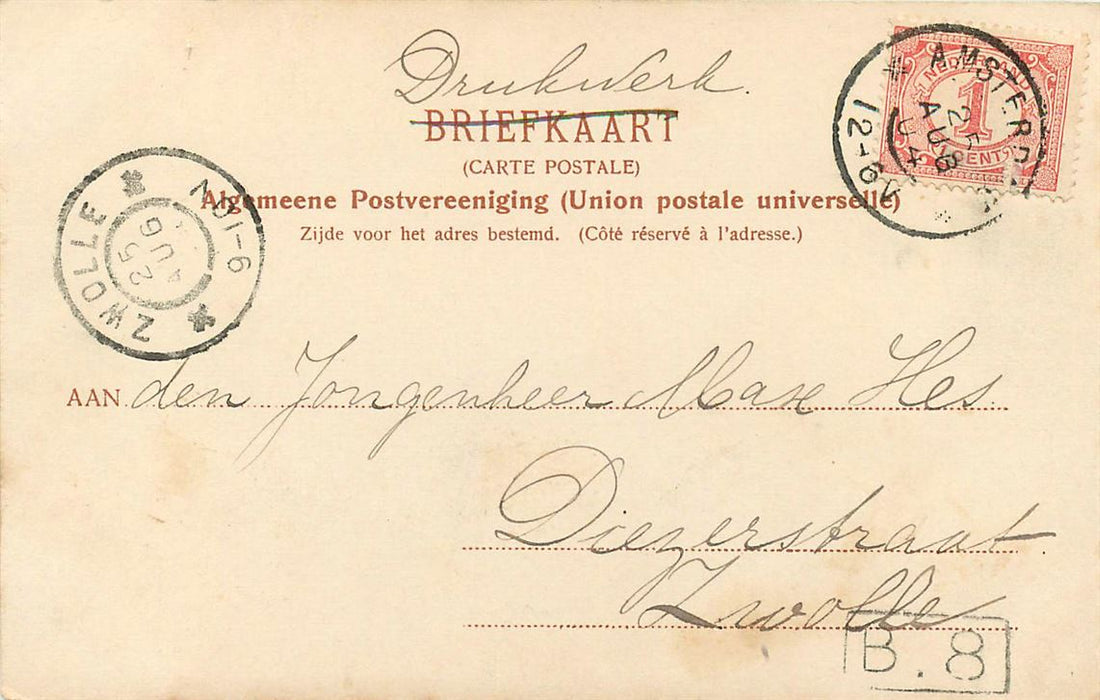 Drukwerk.
BRIEFKAART
(CARTE POSTALE)
Algemeene Postvereeniging (Union postale universelle)
Zijde voor het adres bestemd. (Côté réservé à l'adresse.)
NEDERLAND
1
CENT
AMSTERDAM
25 AUG 04
12-6V
ZWOLLE
25 AUG
9-10V
AAN den Jongenheer Max Hes
Diezerstraat.
Zwolle
B.8